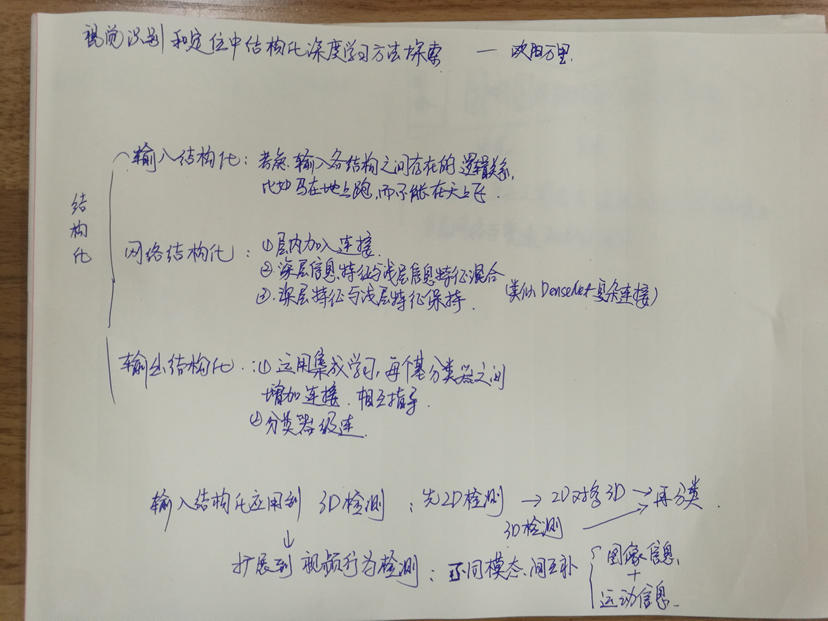 视觉识别和定位中结构化深度学习方法探索 — 欧阳万里
结构化
输入结构化：考虑输入各结构之间存在的逻辑关系，
比如马在地上跑，而不能在天上飞.
网络结构化：①层内加入连接.
②深层信息特征与浅层信息特征混合
③.深层特征与浅层特征保持. (类似DenseNet复杂连接)
输出结构化：①运用集成学习，每个基分类器之间
增加连接.相互指导.
②分类器级连.
输入结构化应用到 3D检测：先2D检测 → 2D对 3D → 再分类.
3D检测
↓
扩展到视频行为检测：不同模态间互补 图像信息
+
运动信息.